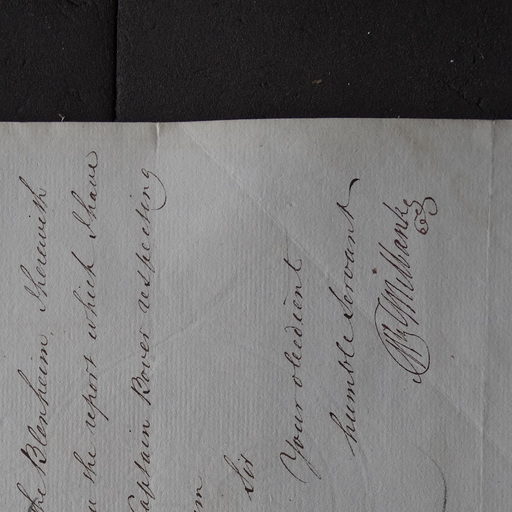 the Blenheim, I herewith
the report which I have
Captain Bover respecting
Sir
Your obedient
humble Servant
Milbanke